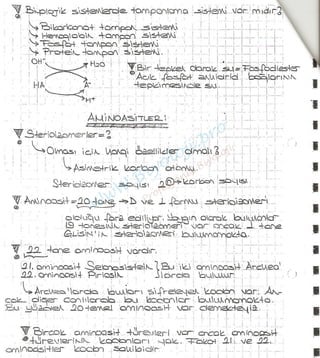 Biyolojik sistemlerde tamponlama sistemi var mıdır?
↳ Bikarbonat tampon sistemi
↳ Hemoglobin tampon sistemi
↳ Fosfat tampon sistemi
↳ Protein tampon sistemi.
OH⁻ H₂O
Bir tepken olarak su = Fosfodiester
bağlarının
HA A⁻ tepkimesinde su.
H⁺
AMİNOASİTLER:
Stereoizomerler = ?
↳ Olması için hangi özellikler olmalı?
↳ Asimetrik karbon atomu.
Stereoizomer sayısı 2ⁿ → karbon sayısı
Aminoasit = 20 tane → D ve L formu stereoizomeri
olduğu fark ediliyor. olarak bulunanlar
19 tanesinin stereoizomeri var ancak 1 tane
Glisin'in stereoizomeri bulunmamakta.
22 tane aminoasit vardır.
21. aminoasit Selenosistein } Bu iki aminoasit Archea'
22. aminoasit Prolisin larda bulunur.
↳ Archea'larda bunları şifreleyen kodon var. An-
cak diğer canlılarda bu kodonlar bulunmamakta.
Bu yüzden 20 temel aminoasit var demekteyiz.
Birçok aminoasit türevleri var ancak aminoasit
türevlerinin kodonları yok. Fakat 21. ve 22.
aminoasitler kodon sahibidir